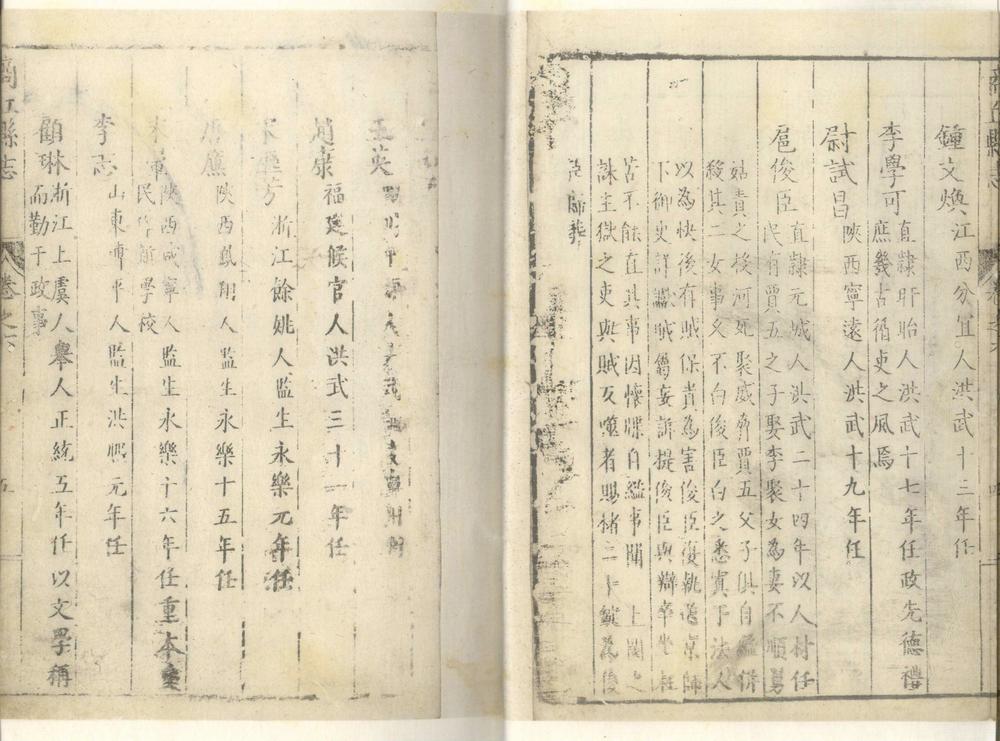 鐘文煥江西分宜人洪武十三年任
李學可直隸盱眙人洪武十七年任政先德禮
庶幾古循吏之風焉
尉試昌陝西寧遠人洪武十九年任
扈俊臣直隸元城人洪武二十四年以人材任
民有賈五之子娶李聚女為妻不順舅
姑責之投河死聚威脅賈五父子俱自縊併
殺其二女事久不白俊臣白之悉寘于法人
以為快後有賊保貴為害俊臣復執送京師
下御史詳讞賊屬妄訴提俊臣與辯
苦不能直其事因懷牒自縊事聞 上
誅主獄之吏與賊反噬者賜楮二十錠為後
歸葬
王英
趙康福建候官人洪武三十一年任
方浙江餘姚人監生永樂元年任
唐應陝西鳳翔人監生永樂十五年任
陝西咸寧人監生永樂十六年任重本愛
民作新學校
李志山東博平人監生洪熙元年任
顧琳浙江上虞人舉人正統五年任以文學稱
而勤于政事
縣志
卷之六
五